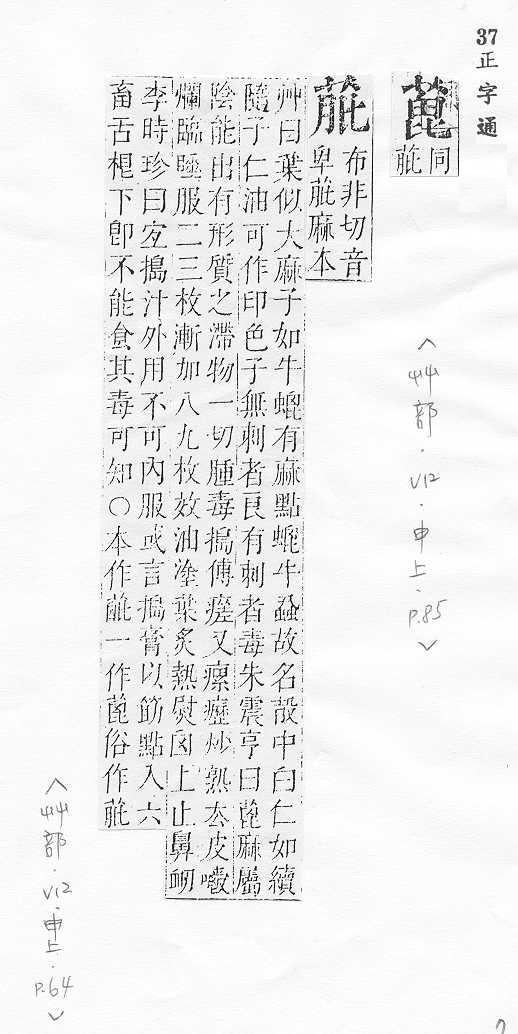 37正字通
蓖同𦯔
〈艸部.V12.申上.P.85〉
𦯔布非切音
卑𦯔麻本
艸曰葉似大麻子如牛蜱有麻點蜱牛蝨故名殼中白仁如續
隨子仁油可作印色子無刺者良有刺者毒朱震亨曰蓖麻屬
隂能出有形質之滯物一切腫毒搗傅瘥又瘰癧炒熟去皮嚼
爛臨睡服二三枚漸加八九枚效油塗葉炙熱熨囟上止鼻衂
李時珍曰宐搗汁外用不可內服或言搗膏以筯點入六
畜舌根下卽不能食其毒可知○本作蓖一作蓖俗作𦯔
〈艸部.V12.申上.P.64〉